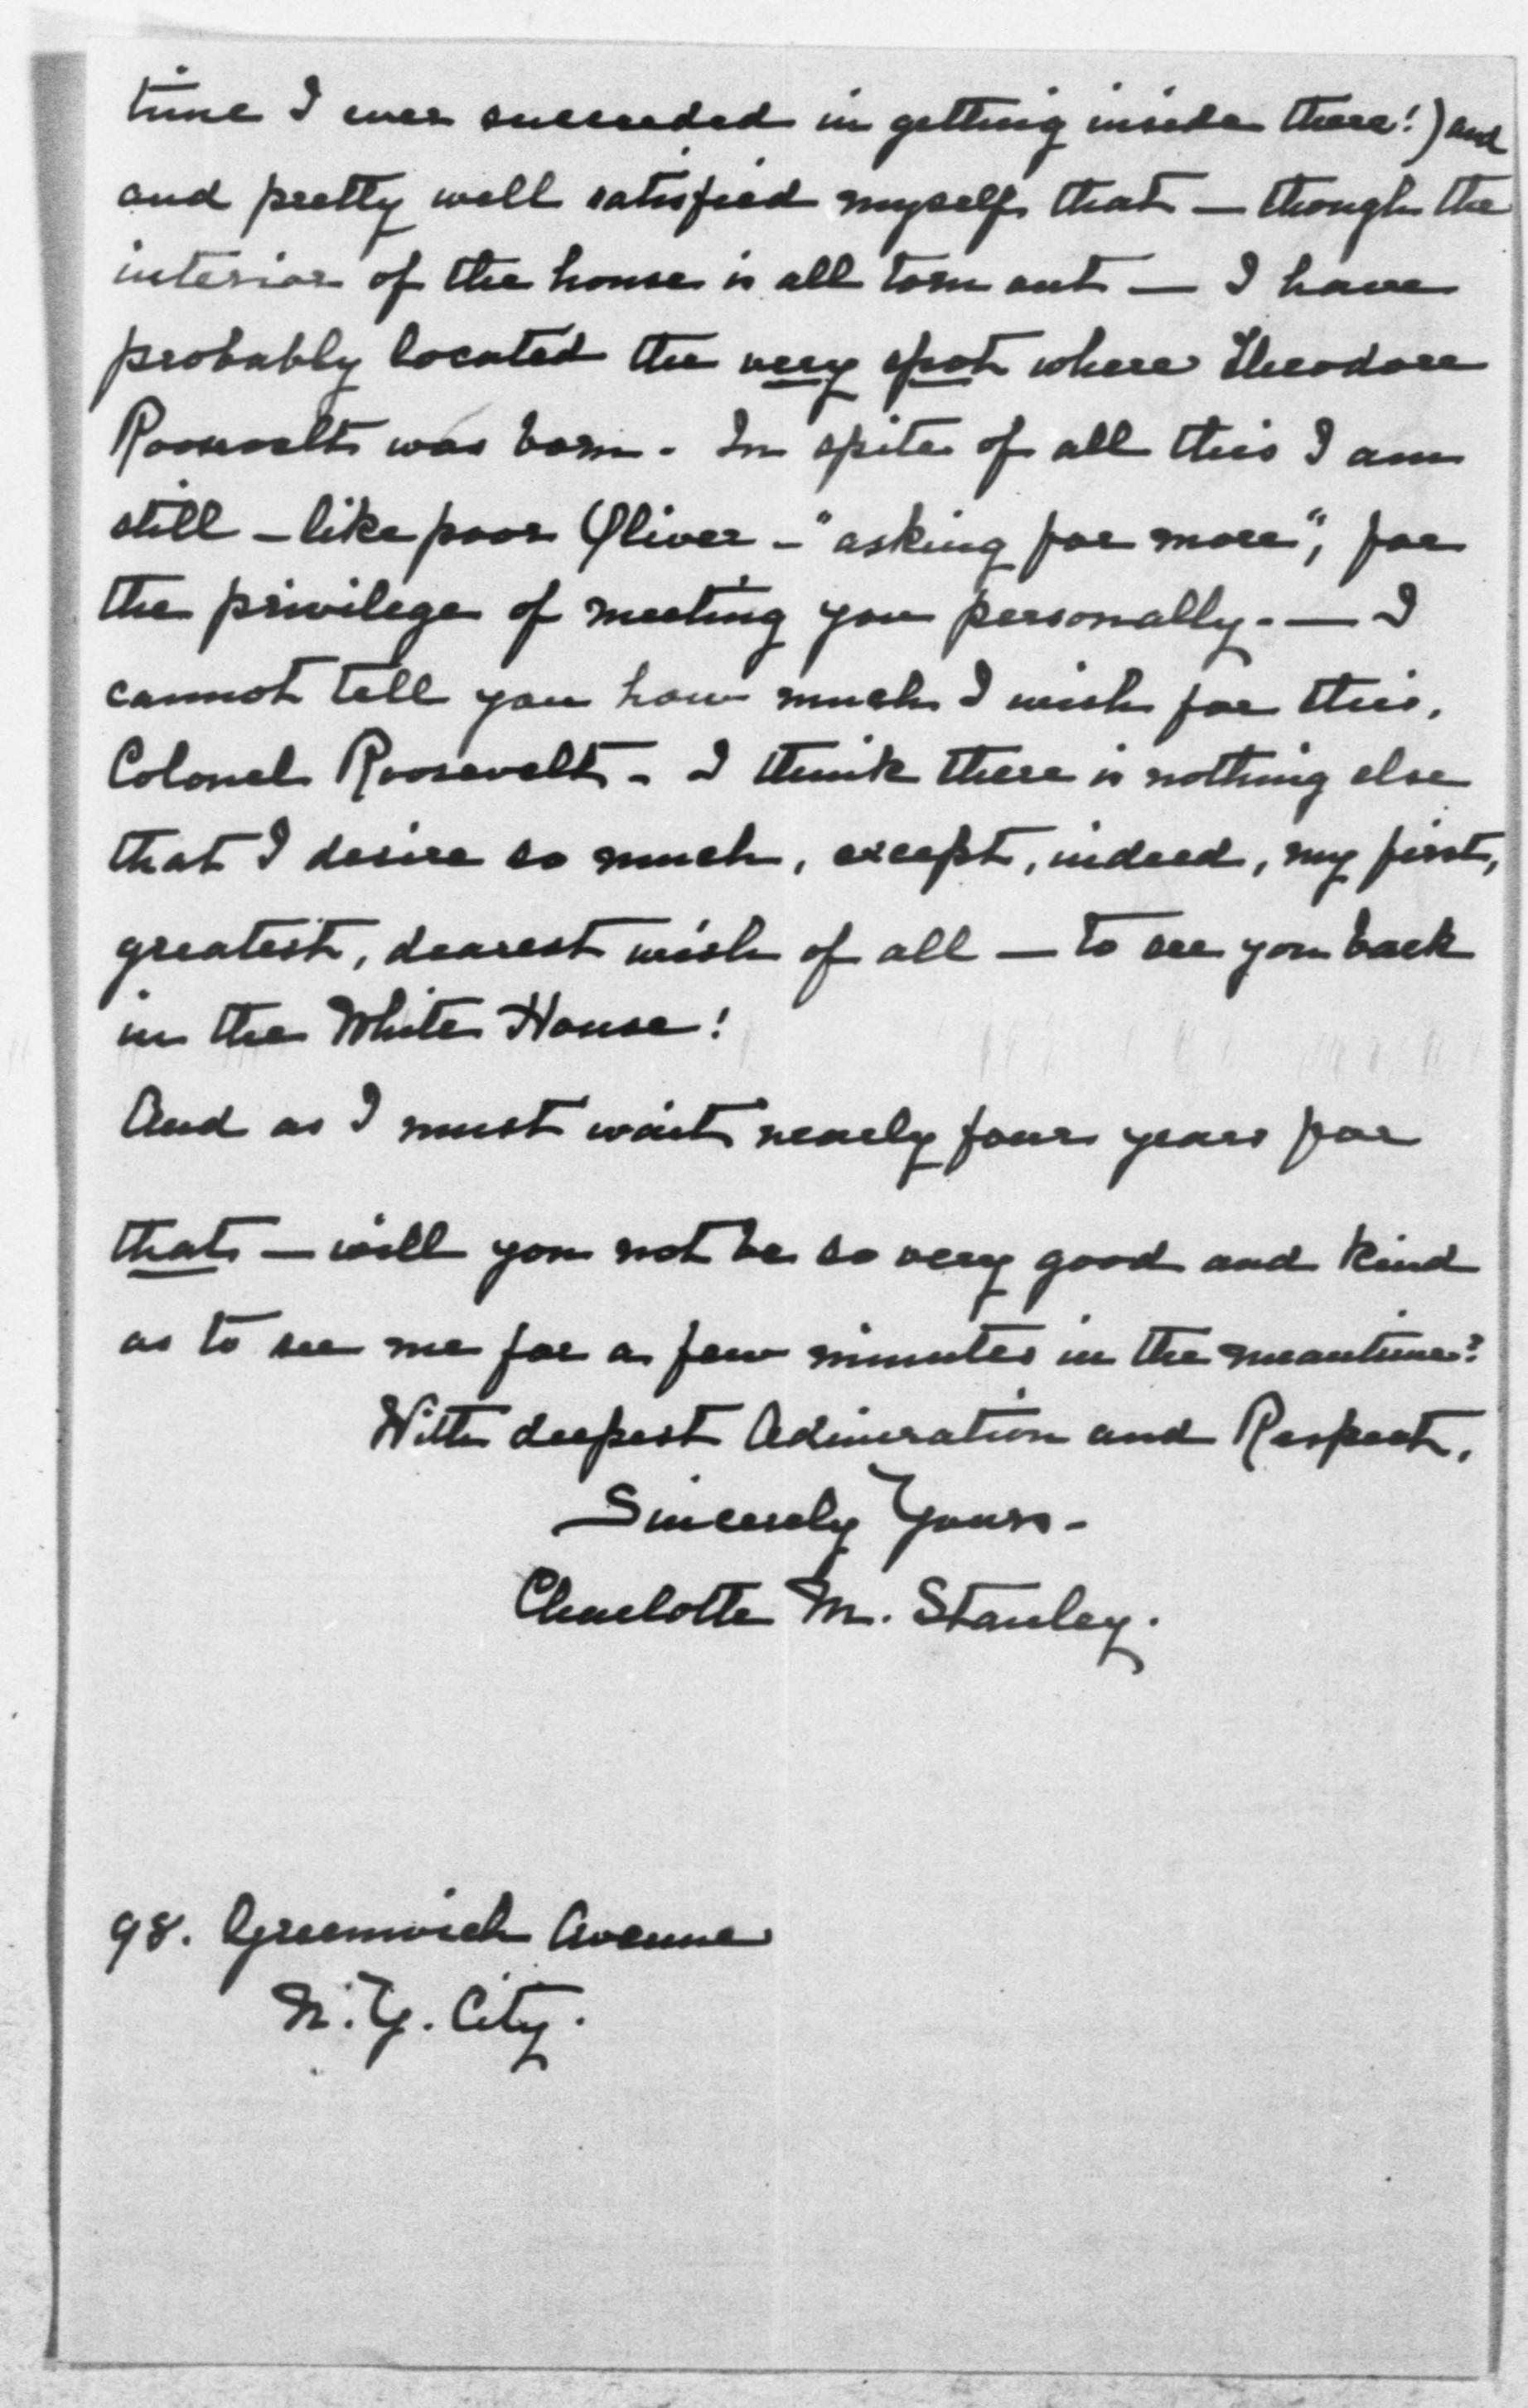 time I ever succeeded in getting inside there!) and
and pretty well satisfied myself that — though the
interior of the house is all torn out — I have
probably located the very spot where Theodore
Roosevelt was born. In spite of all this I am
still — like poor Oliver — "asking for more", for
the privilege of meeting you personally. — I
cannot tell you how much I wish for this,
Colonel Roosevelt — I think there is nothing else
that I desire so much, except, indeed, my first,
greatest, dearest wish of all — to see you back
in the White House!
And as I must wait nearly four years for
that — will you not be so very good and kind
as to see me for a few minutes in the meantime?
With deepest Admiration and Respect,
Sincerely Yours —
Charlotte M. Stanley.
98. Greenwich Avenue
N.Y. City.